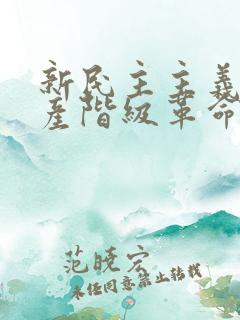 新民主主義
產階級革命
范曉宏
未任同意禁止转载